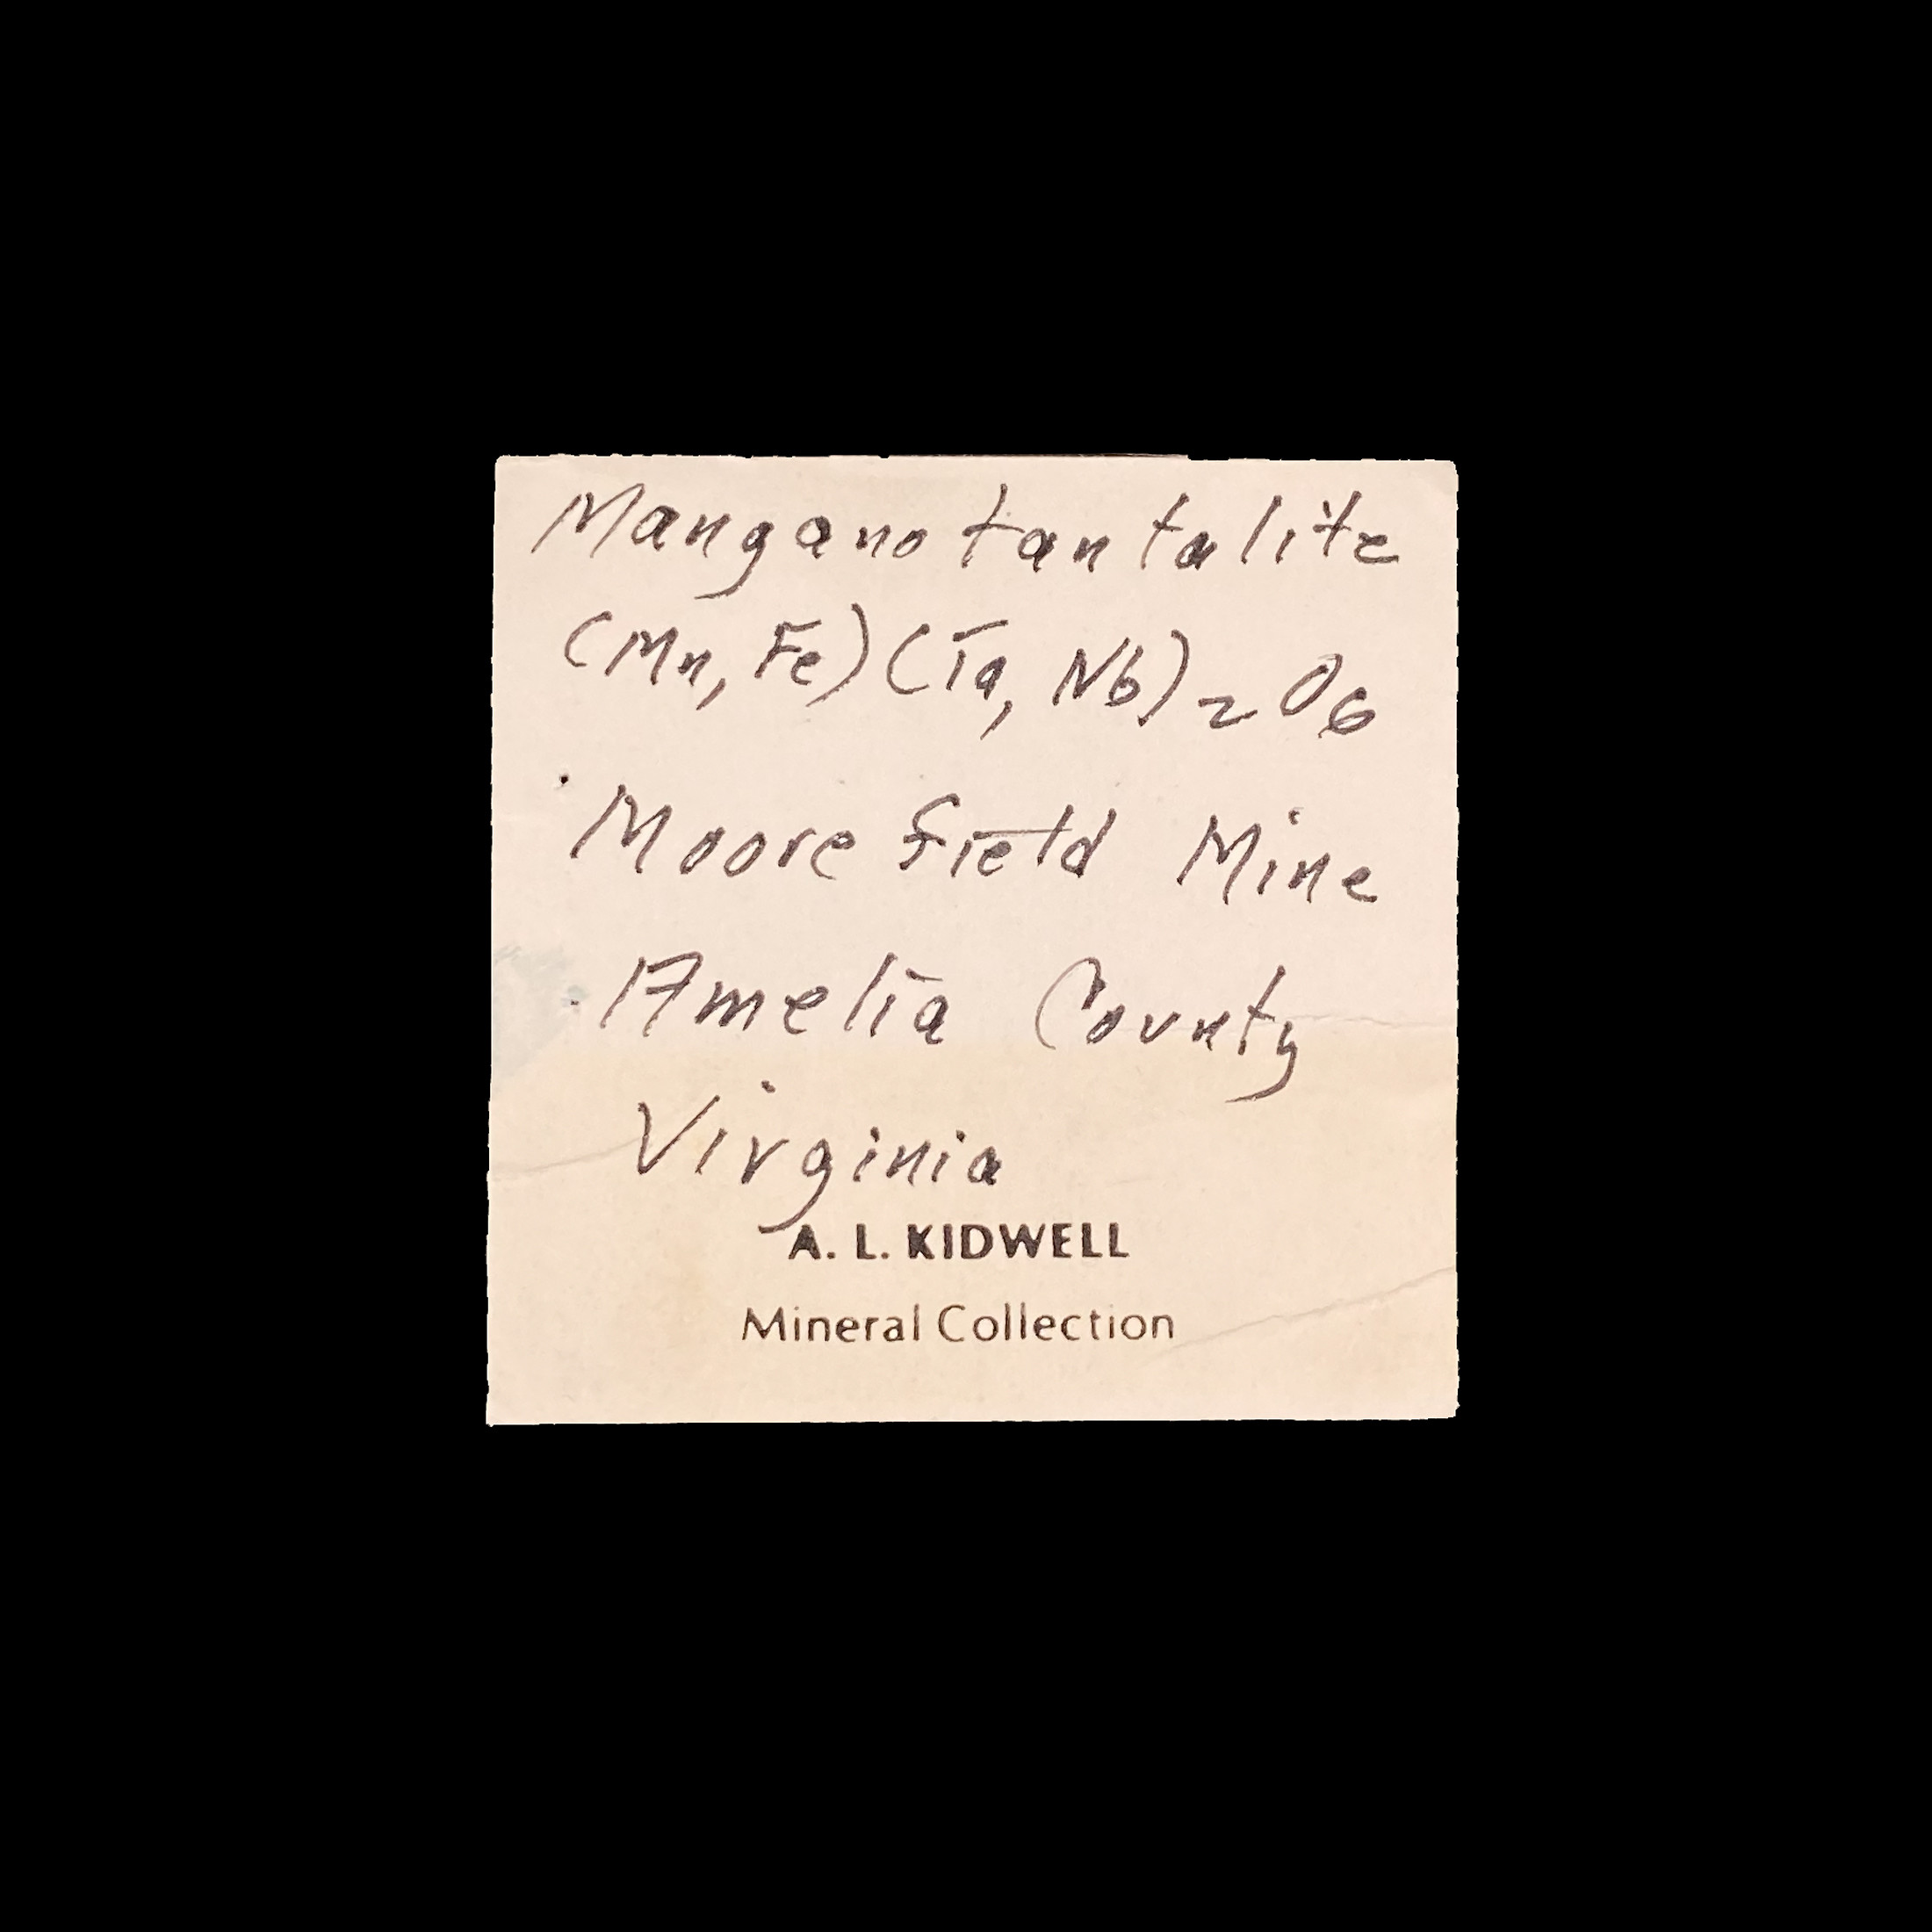 Manganotantalite
(Mn, Fe)(Ta, Nb)₂O₆
Moorefield Mine
Amelia County
Virginia
A. L. KIDWELL
Mineral Collection